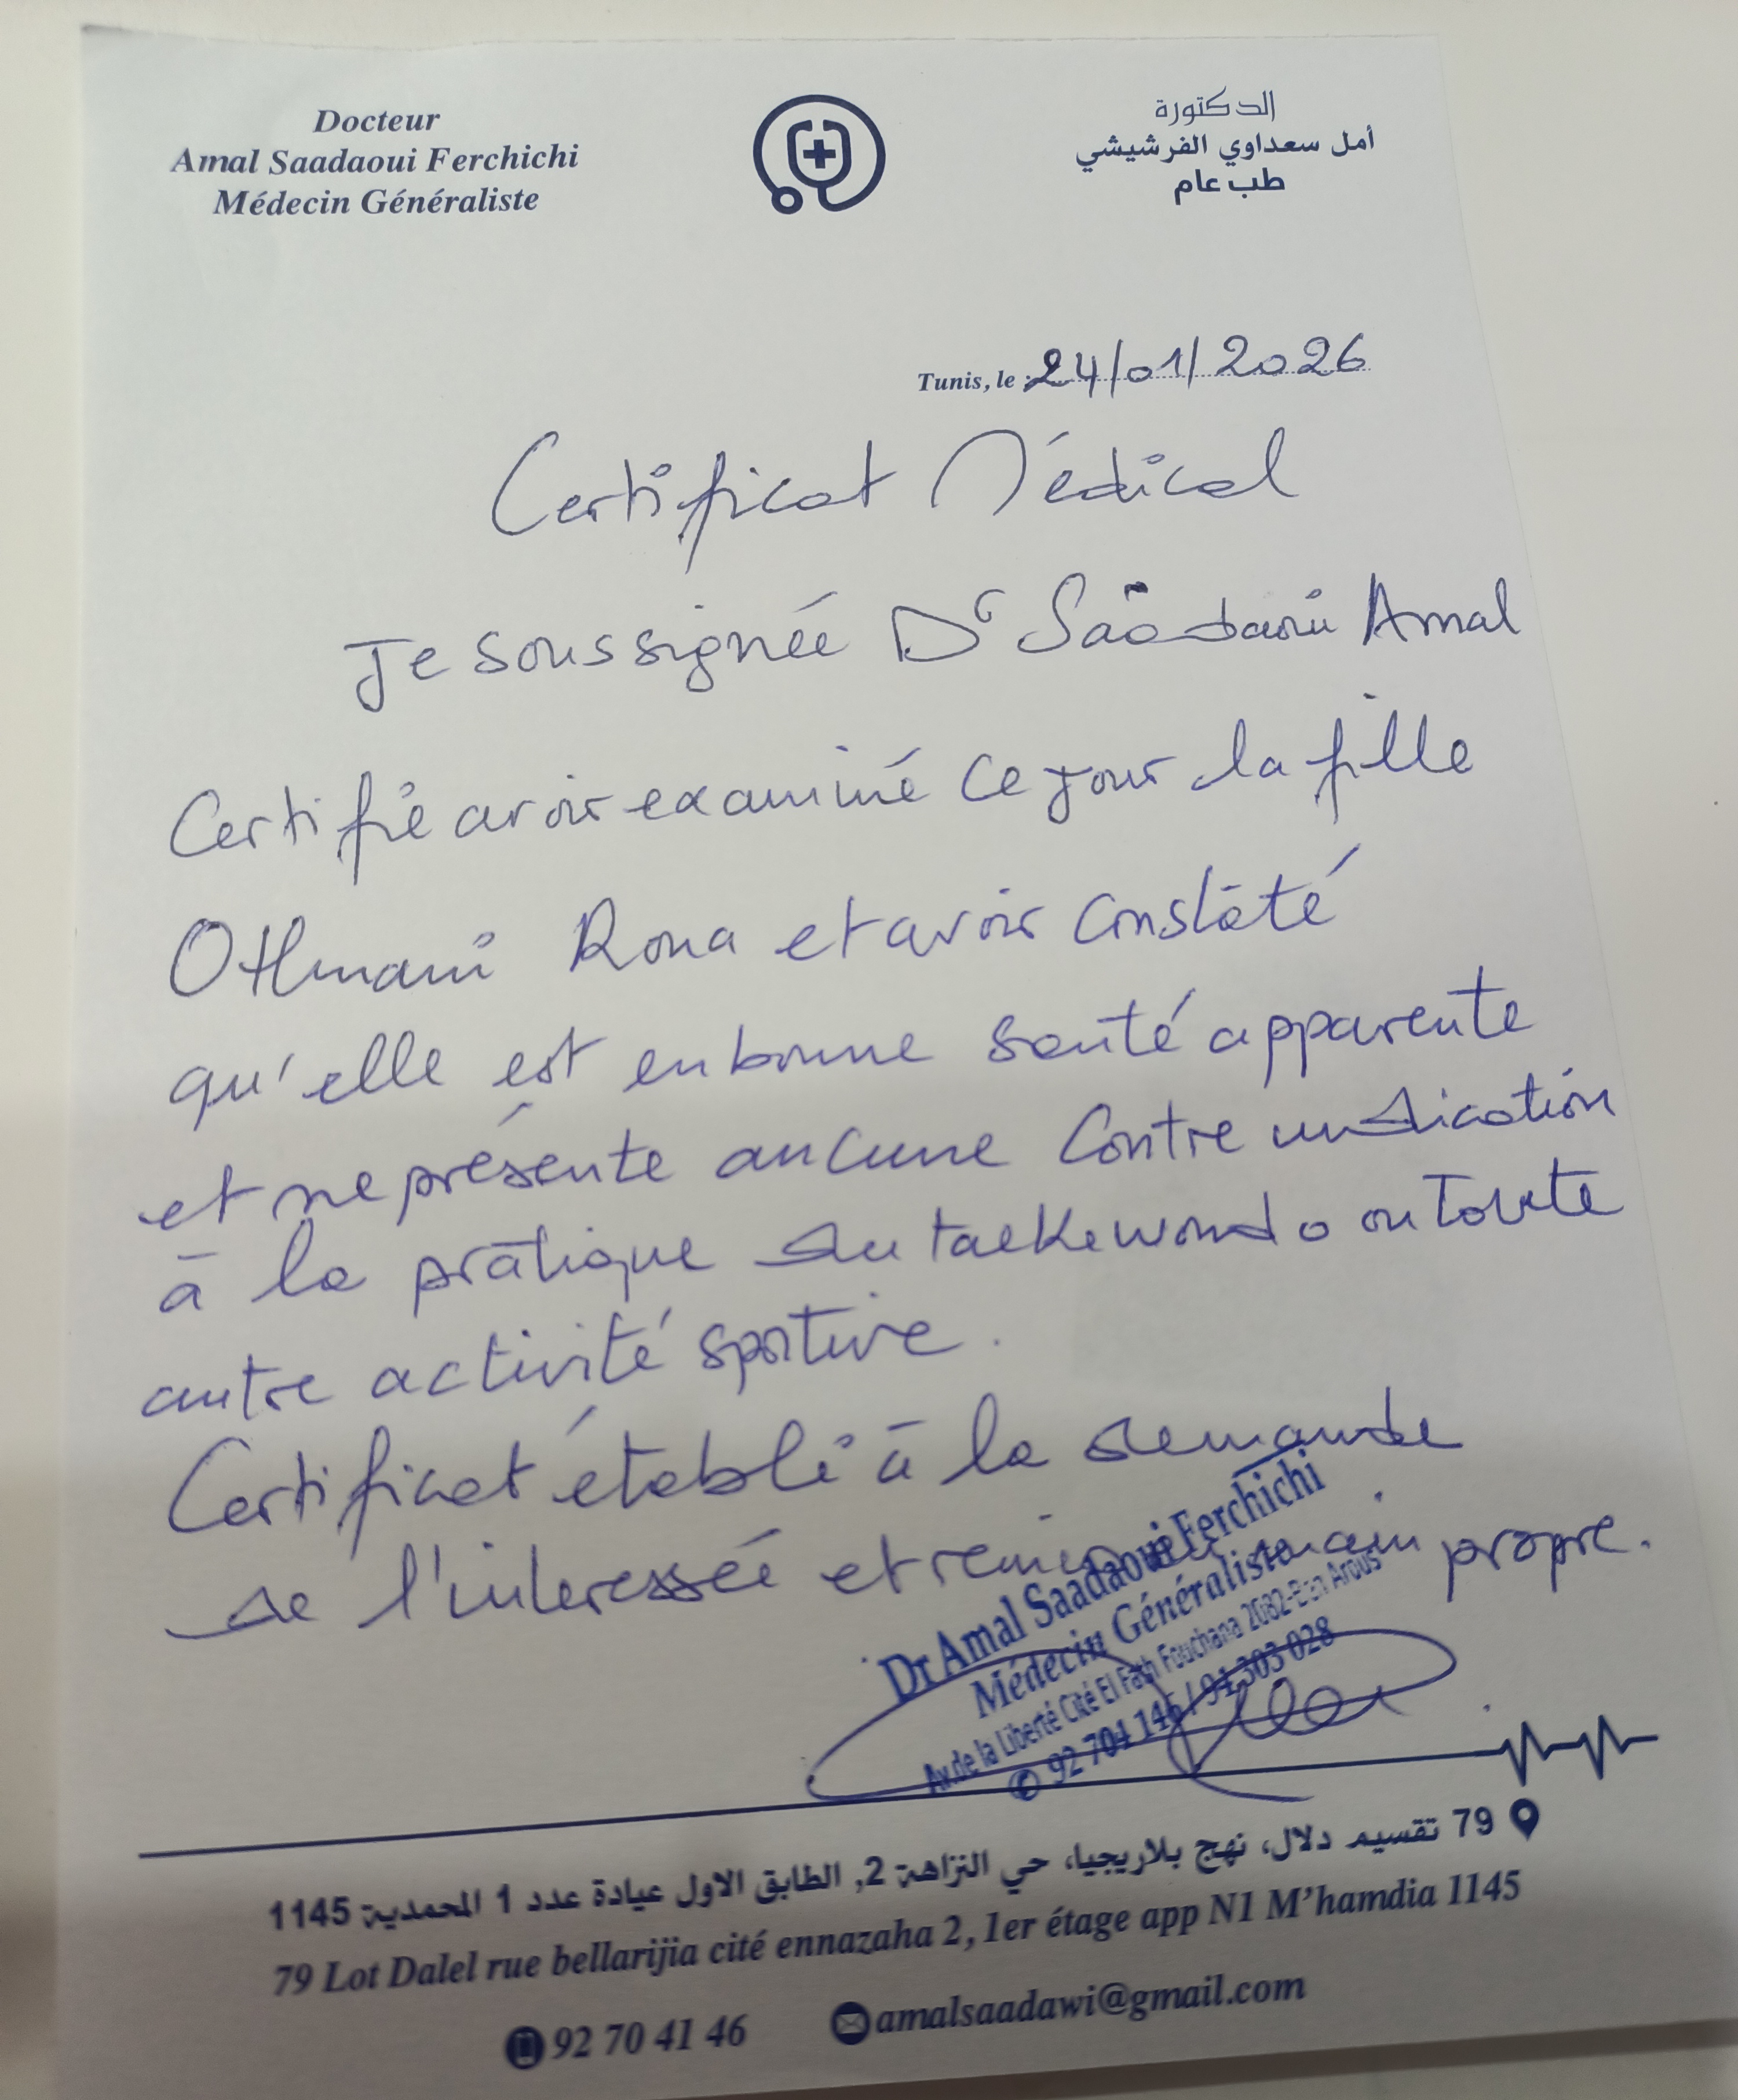 Docteur
Amal Saadaoui Ferchichi
Médecin Généraliste
الدكتورة
أمل سعداوي الفرشيشي
طب عام
Tunis, le : 24/01/2026
Certificat Médical
Je soussignée Dr Saadaoui Amal
Certifie avoir examiné ce jour la fille
Othmani Roua et avoir constaté
qu'elle est en bonne santé apparente
et ne présente aucune contre indication
à la pratique du taekewondo ou toute
autre activité sportive.
Certificat établi à la demande
de l'interessée et remis en main propre.
Dr Amal Saadaoui Ferchichi
Médecin Généraliste
Av. de la Liberté Cité El Fath Fouchana 2082-Ben Arous
92 704 146 / 94 303 028
79 تقسيم دلال، نهج بلاريجيا، حي النزاهة 2, الطابق الاول عيادة عدد 1 المحمدية 1145
79 Lot Dalel rue bellarijia cité ennazaha 2, 1er étage app N1 M'hamdia 1145
92 70 41 46 amalsaadawi@gmail.com